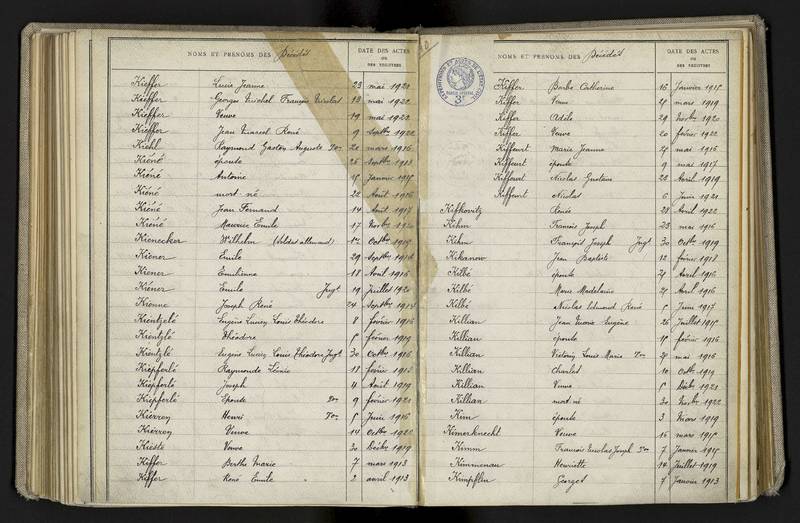 NOMS ET PRÉNOMS DES Décédés
DATE DES ACTES
OU
DES REGISTRES
Kieffer Lucie Jeanne 23 mai 1920
Kieffer Georges Michel François Nicolas 12 mai 1922
Kieffer Veuve 19 mai 1922
Kieffer Jean Marcel René 9 Septbre 1922
Kiehl Raymond Gaston Auguste 20 mars 1916
Kiéné épouse 26 Septbre 1913
Kiéné Antoine Janvier 1915
Kiéné mort né 22 Août 1916
Kiéné Jean Fernand 14 Août 1917
Kiéné Maurice Emile 17 Novbre
Kienecker Wilhelm (Soldat allemand) 12 Octbre
Kiener Emile 29 Septbre
Kiener Emilienne 18 Avril 1916
Kiener Emile Jugt 19 Juillet 1920
Kienne Joseph René 24 Septbre 1914
Kientzlé Eugène Lucien Louis Théodore 8 février 1916
Kientzlé Théodore février 1919
Kientzlé Eugène Lucien Louis Théodore Jugt 30 Octbre 1916
Kiepferlé Raymonde Léonie 18 février 1913
Kiepferlé Joseph 4 Août 1919
Kiepferlé Epouse 9 février 1921
Kierren Henri Juin 1916
Kierren Veuve 14 Octbre 1920
Kieste Veuve 30 Décbre 1919
Kiffer Berthe Marie 7 mars 1913
Kiffer René Emile 2 avril 1913
NOMS ET PRÉNOMS DES Décédés
DATE DES ACTES
OU
DES REGISTRES
Kiffer Barbe Catherine 16 Janvier 1915
Kiffer Veuve mars 1919
Kiffer Adèle 29 Novbre 1920
Kiffer Veuve 20 février 1922
Kiffeurt Marie Jeanne mai 1916
Kiffeurt épouse 9 mai 1917
Kiffeurt Nicolas Gustave 28 Avril 1919
Kiffeurt Nicolas 6 Juin 1921
Kifkovitz Renée 28 Avril 1922
Kihm François Joseph 23 mai 1916
Kihm François Joseph Jugt 30 Octbre 1919
Kikanow Jean Baptiste 12 février 1918
Kilbé épouse Avril 1916
Kilbé Marie Madelaine Avril 1916
Kilbé Nicolas Edmond René Juin 1917
Killian Jean Marie Eugène 26 Juillet 1915
Killian épouse février 1916
Killian Victorin Louis Marie mai 1916
Killian Charlot 10 Octbre 1919
Killian Veuve Décbre 1921
Killian mort né 30 Novbre 1922
Kim épouse 3 Mars 1919
Kimerknecht Veuve 16 mars 1915
Kimm François Nicolas Joseph 7 Janvier 1915
Kimmenau Henriette 24 Juillet 1919
Kimpflin Georget 7 Janvier 1913